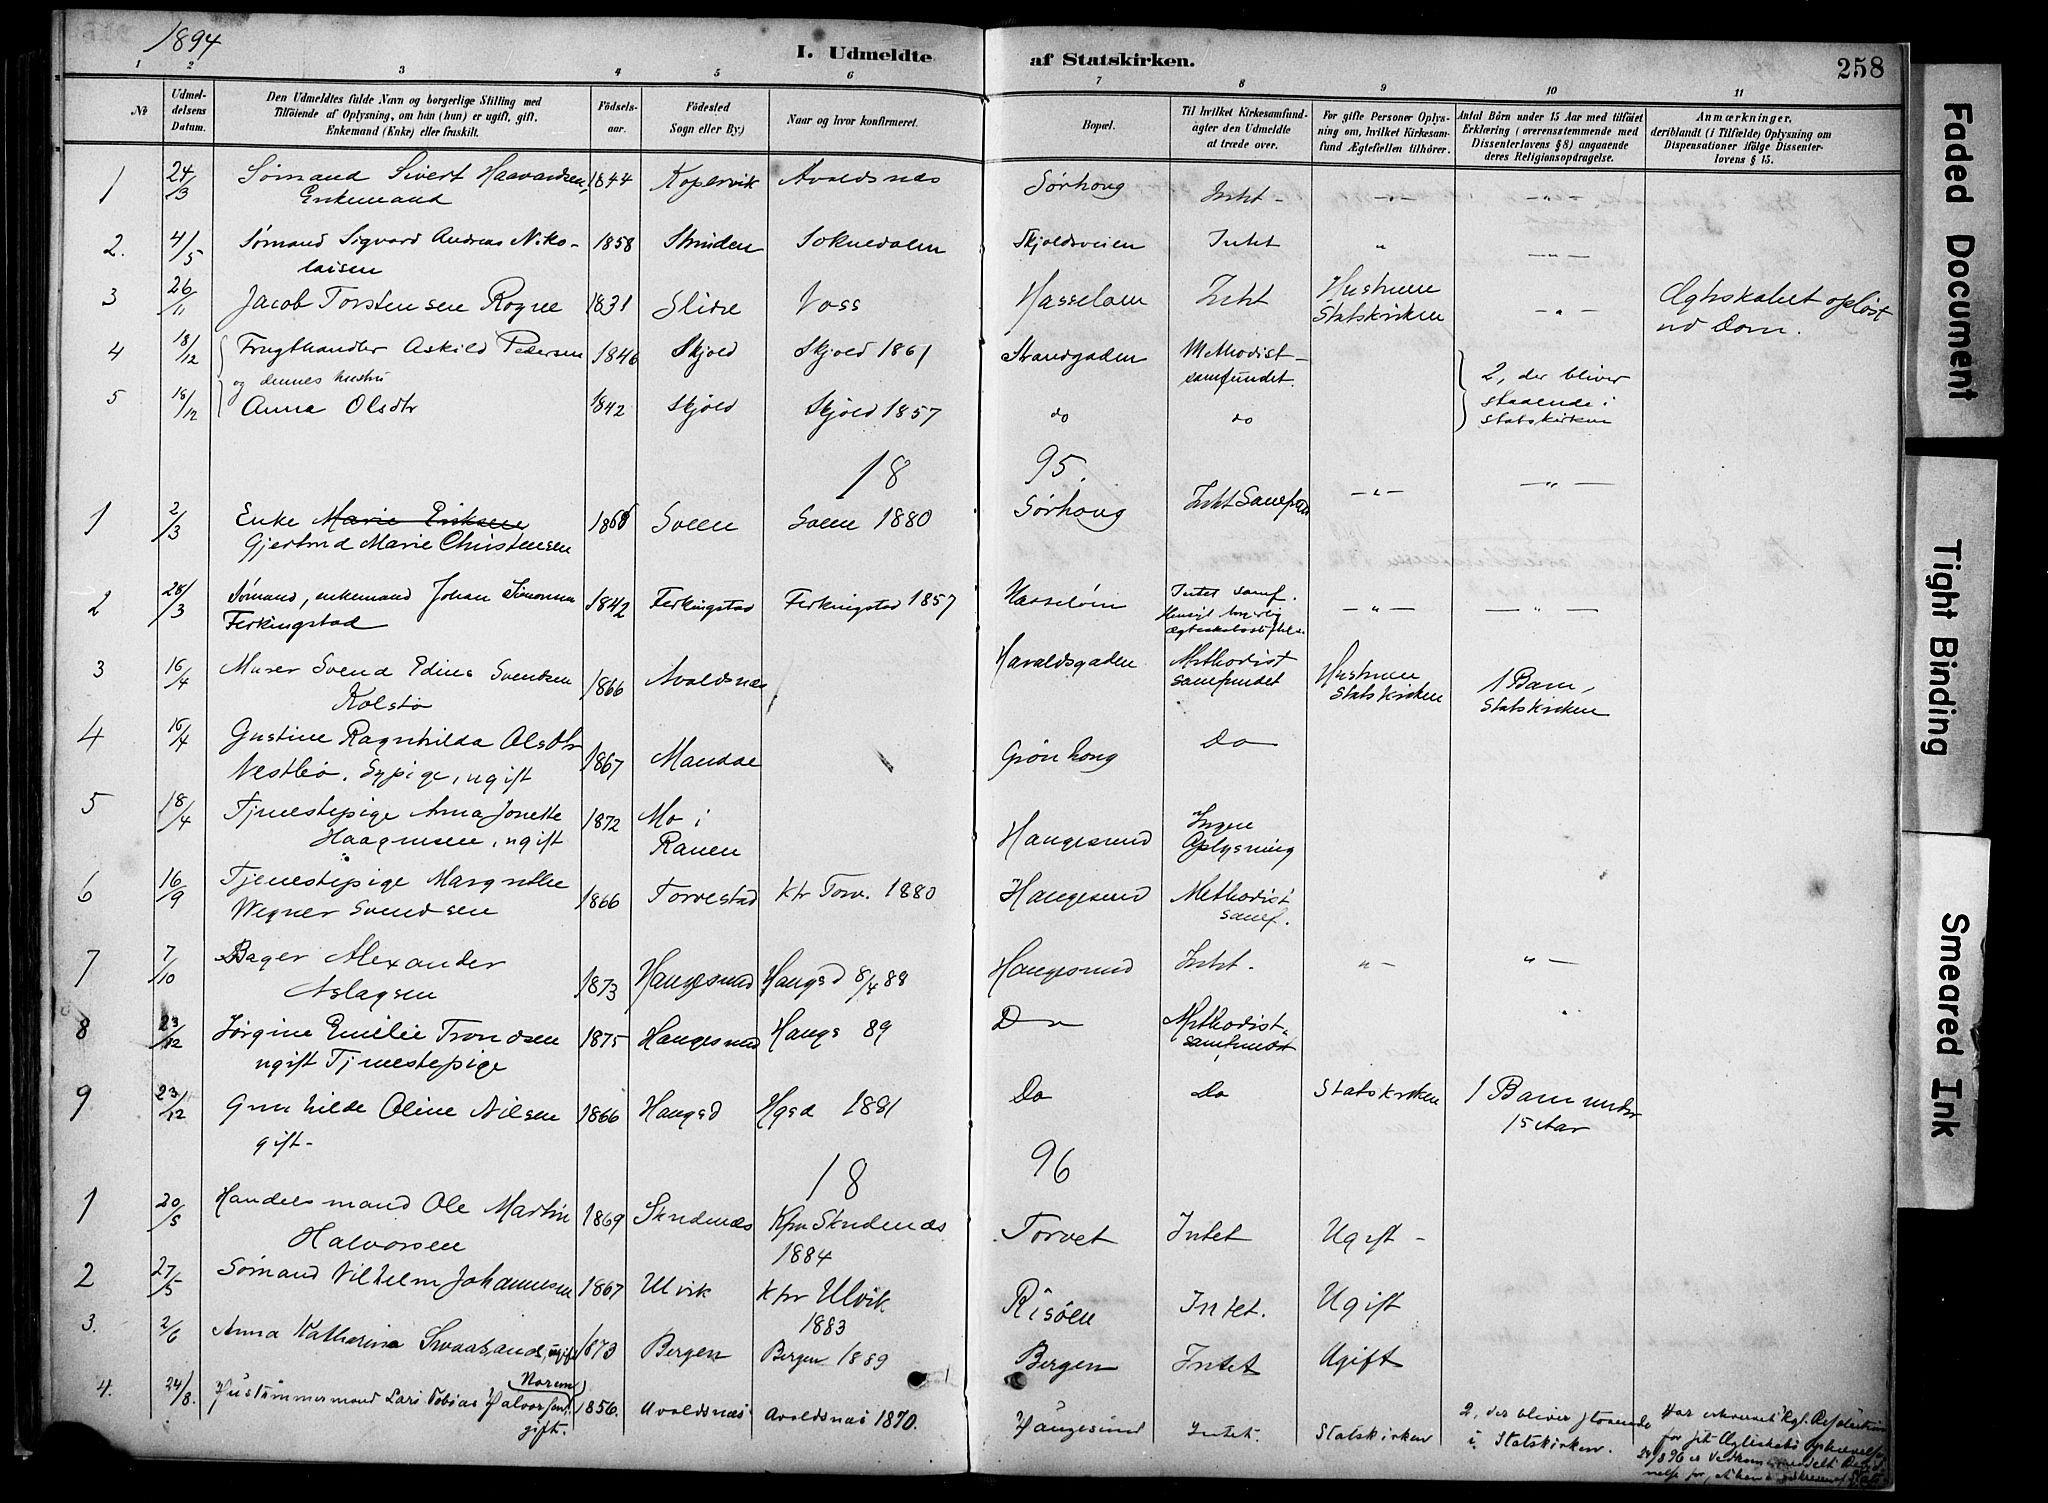 1894
I. Udmeldte af Statskirken.
258
1 2 3 4 5 6 7 8 9 10 11
No
Udmeldelsens Datum.
Den Udmeldtes fulde Navn og borgerlige Stilling med
Tilföiende af Oplysning, om han (hun) er ugift, gift,
Enkemand (Enke) eller fraskilt.
Födselsaar.
Födested
Sogn eller By)
Naar og hvor konfirmeret.
Bopæl.
Til hvilket Kirkesamfund
agter den Udmeldte
at træde over.
For gifte Personer Oplysning
om, hvilket Kirkesamfund
Ægtefællen tilhører.
Antal Börn under 15 Aar med tilföiet
Erklæring (overensstemmende med
Dissenterlovens § 8) angaaende
deres Religionsopdragelse.
Anmærkninger,
deriblandt (i Tilfælde) Oplysning om
Dispensationer ifölge Dissenterlovens
§ 15.
1 24/3 Sømand Sivert Haavardsen, 1844 Kopervik Avaldsnæs Sørhoug Intet - - " - - " -
Enkemand
2. 4/5 Sømand Sigvard Andreas Niko- 1858 Strinden Soknedalen Skjoldsveien Intet " - " -
laisen
3 26/11 Jacob Torstensen Rogne 1831 Slidre Voss Hasseløen Intet Hustruen Statskirken - " - Ægteskabet opløst
ved Dom.
4 18/12 Frugthandler Askild Pedersen 1846 Skjold Skjold 1861 Strandgaden Methodist-
samfundet. 2, der bliver
og dennes hustru
5 18/12 Anna Olsdtr 1842 Skjold Skjold 1857 do do staaende i
Statskirken
18 95.
1 2/3 Enke Marie Eriksen Sveen Sveen 1880 Sørhoug Intet Samfund - " - - " -
Gjertrud Marie Christensen
2 28/3 Sømand, enkemand Johan Simonsen 1842 Ferkingstad Ferkingstad 1857 Hasseløen Intet samf. - " - - " -
Ferkingstad
Hensigt borgerlig
ægteskabsstiftelse.
3 16/4 Murer Svend Edius Svendsen 1866 Avaldsnæs Haraldsgaden Methodist
samfundet Hustruen
Statskirken 1 Barn,
Statskirken
Kolstø
4 16/4 Gustine Ragnhilda Olsdtr 1867 Mandal Grønhoug Do
Vestbø, Sypige, ugift
5 18/4 Tjenestepige Anna Jonette 1872 Mo i
Ranen Haugesund Ingen
Oplysning
Haagensen, ugift
6 16/9 Tjenestepige Margrethe 1866 Torvestad Ktr Torv. 1880 Haugesund Methodist
samf.
Wegner Svendsen
7 7/10 Bager Alexander 1873 Haugesund Haugsd 8/4 88 Haugesund Intet. " - " -
Aslagsen
8 23/12 Jørgine Emilie Trondsen 1875 Haugesund Haugs 89 Do Methodist-
samfundet
ugift Tjenestepige
9 23/12 Gunhilde Oline Nilsen 1866 Haugsd Hgsd 1881 Do Do Statskirken 1 Barn under
15 Aar
gift-
18 96
1 20/5 Handelsmand Ole Martin 1869 Skudenæs Kfm Skudenæs
1884 Torvet Intet Ugift -
Halvorsen
2 27/5 Sømand Vilhelm Johannesen 1867 Ulvik ktr Ulvik
1883 Risøen Intet. Ugift
3. 2/6 Anna Katharina Svaasand, ugift 1873 Bergen Bergen 1889 Bergen Intet Ugift
4. 24/8. Hustømmermand Lars Tobias Halvorsen, Norem 1856. Avaldsnæs Avaldsnæs 1870. Haugesund Intet. Statskirken 2, der bliver staaende
i Statskirken.
gift.
Har erhvervet Kgl. Resolution
for sit Ægteskabs Ophævelse
Faded Document
Tight Binding
Smeared Ink